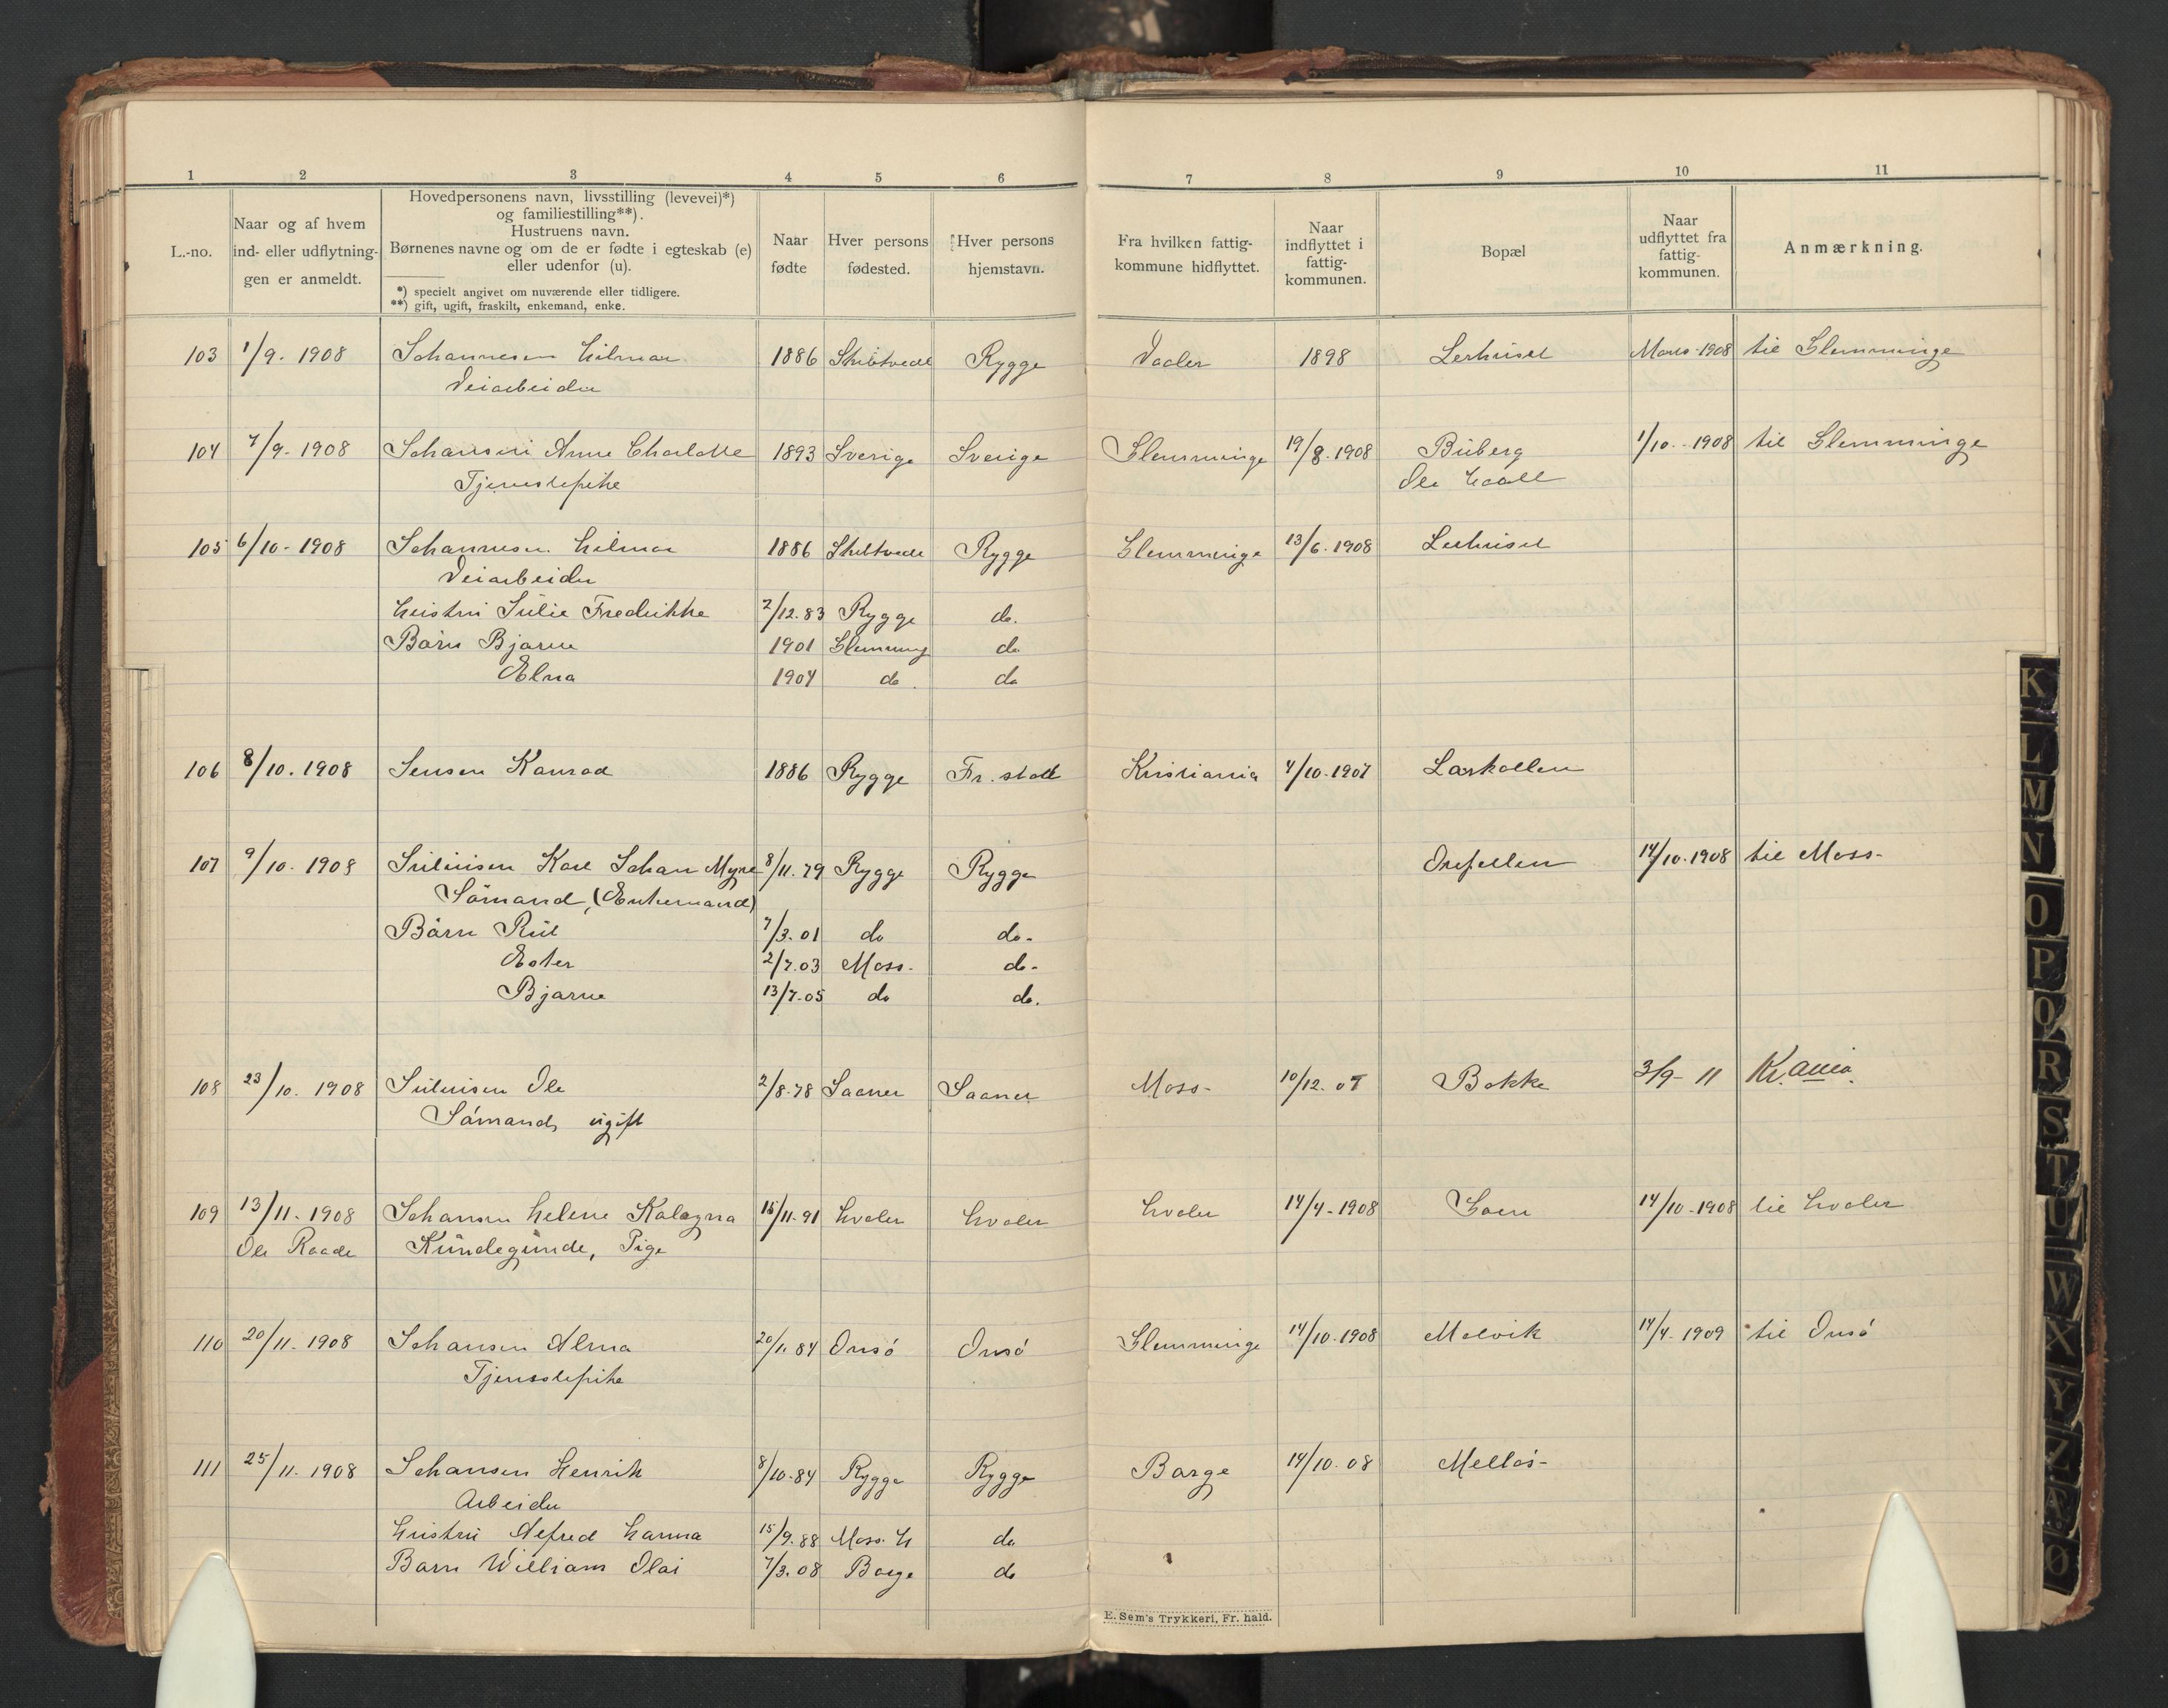 1 2 3 4 5 6 7 8 9 10 11
L.-no.
Naar og af hvem
ind- eller udflytnin-
gen er anmeldt.
Hovedpersonens navn, livsstilling (levevei)*)
og familiestilling**).
Hustruens navn.
Børnenes navne og om de er fødte i egteskab (e)
eller udenfor (u).
*) specielt angivet om nuværende eller tidligere.
**) gift, ugift, fraskilt, enkemand, enke.
Naar
fødte
Hver persons
fødested.
Hver persons
hjemstavn.
Fra hvilken fattig-
kommune hidflyttet.
Naar
indflyttet i
fattig-
kommunen.
Bopæl
Naar
udflyttet fra
fattig-
kommunen.
Anmærkning.
103 1/9. 1908 Johannesen Hilmar 1886 Skibtvedt Rygge Vaaler 1898 Lerhuset Mars 1908 til Glemminge
Veiarbeider
104 7/9. 1908 Johansen Anne Charlotte 1893 Sverige Sverige Glemminge 19/8. 1908 Buberg 1/10. 1908 til Glemminge
Tjenestepike Ole
105 6/10. 1908 Johannesen Hilmar 1886 Skibtvedt Rygge Glemminge 13/6. 1908 Lerhuset
Veiarbeider
Hustru Julie Fredrikke 2/12.83 Rygge do.
Børn Bjarne 1901 Glemming do
Elna 1904 do do
106 8/10. 1908 Jensen Konrad 1886 Rygge Fr. stad Kristiania 4/10. 1907 Larkollen
107 9/10. 1908 Juliusen Karl Johan Myre 8/11. 79 Rygge Rygge Orefellen 14/10. 1908 til Moss-
Sömand, (Enkemand)
Börn Rut 7/3. 01 do do-
Ester 2/7. 03 Moss- do-
Bjarne 13/7. 05 do do.
108 23/10. 1908 Juliusen Ole 2/8. 78 Saaner Saaner Moss- 10/12. 07 Bakke 3/9- 11 Kr. ania.
Sömand, ugift
109 13/11. 1908 Johansen Helene Kalagna 15/11. 91 Hvaler Hvaler Hvaler 14/4- 1908 Soen 14/10- 1908 til Hvaler
Ole Raade Kundegunde, Pige
110 20/11. 1908 Johansen Alma 20/1. 84 Onsö Onsö Glemminge 14/10- 1908 Melvik 14/4. 1909 til Onsö
Tjenestepike
111 25/11. 1908 Johansen Henrik 8/10. 84 Rygge Rygge Borge 14/10. 08 Mellös-
Arbeider
Hustru Alfred Hanna 15/9. 88 Moss. H do
Barn William Olai 7/3. 08 Borge do
E. Sem's Trykkeri, Fr. hald.
K
L
M
N
O
P
Q
R
S
T
U
W
X
Y
Z
Æ
Ø